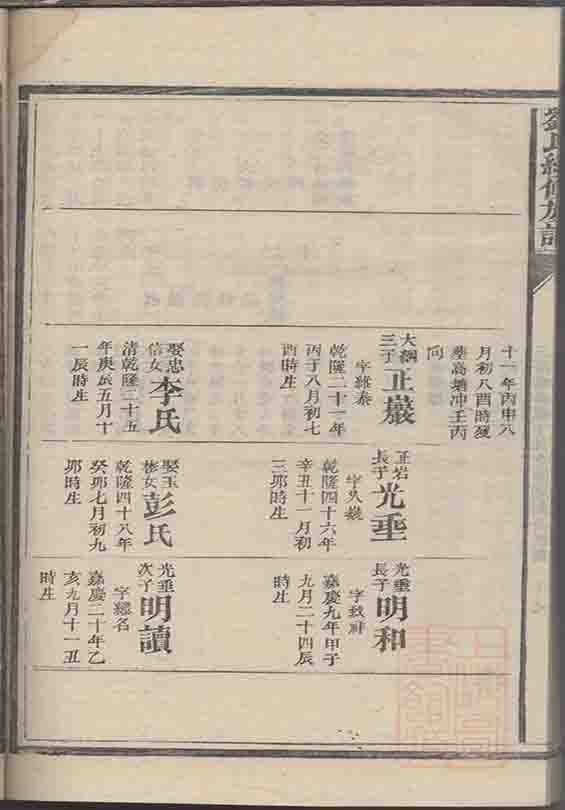 劉氏續修族譜
十一年丙申八
月初八酉時殁
塟高塘冲壬丙
向
大綱
三子
正巖
字維泰
乾隆二十一年
丙子八月初七
酉時生
娶忠
信女
李氏
清乾隆二十五
年庚辰五月十
一辰時生
正岩
長子
光垂
乾隆四十六年
辛丑十一月初
三卯時生
娶玉
彬女
彭氏
乾隆四十八年
癸卯七月初九
卯時生
光垂
長子
明和
嘉慶九年甲子
九月二十四辰
時生
光垂
次子
明讀
字繼名
嘉慶二十年乙
亥九月十一丑
時生